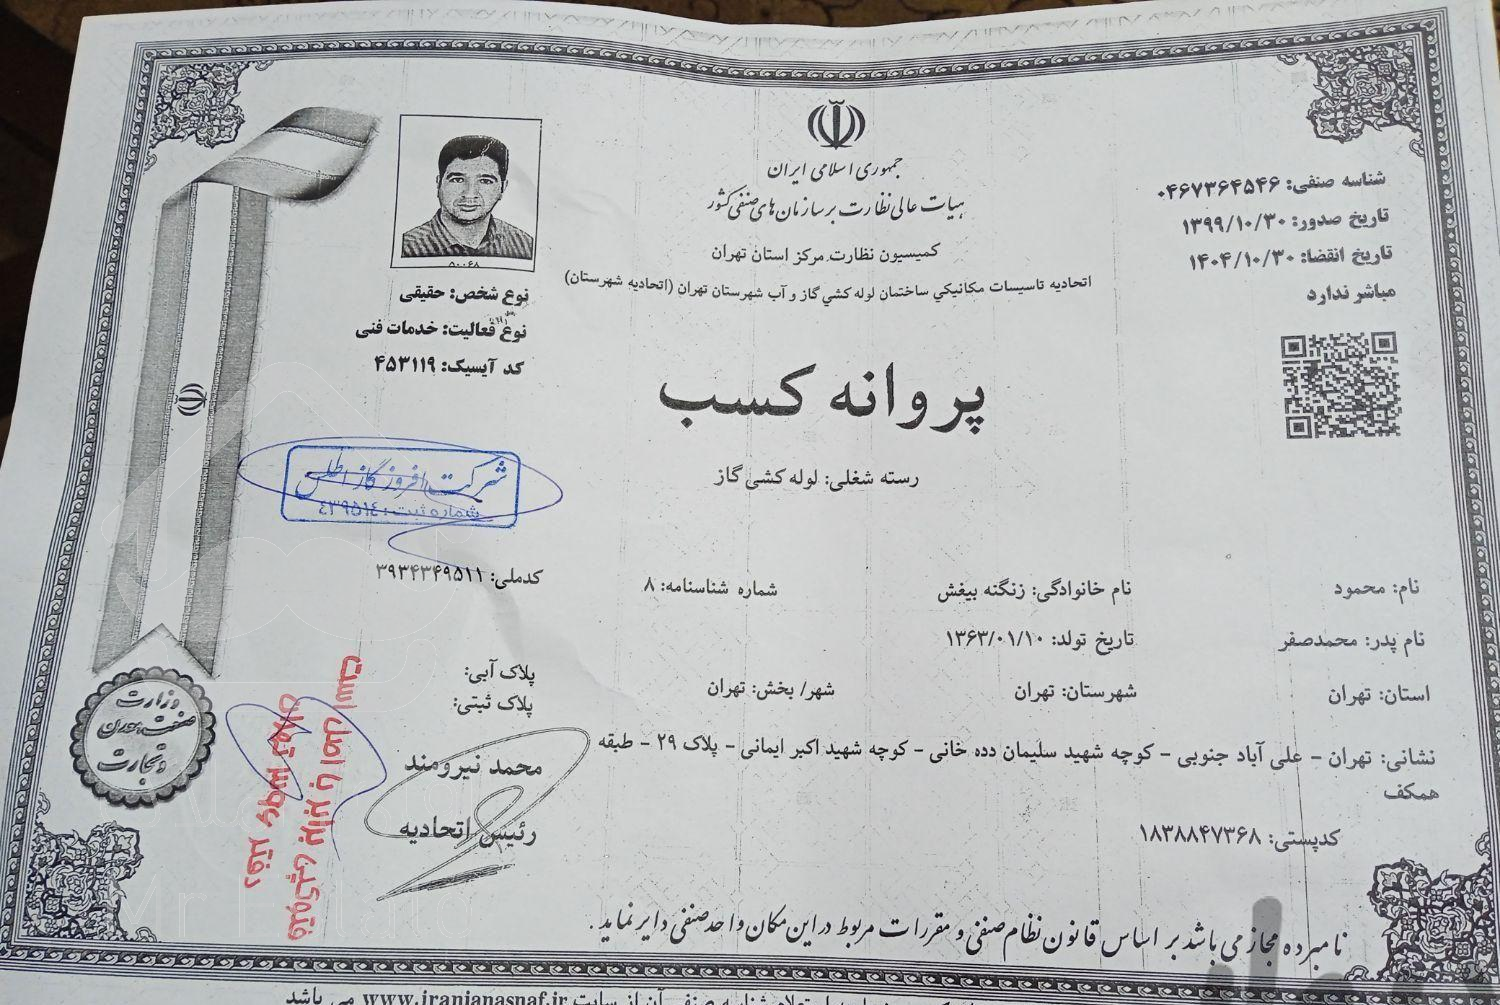 جمهوری اسلامی ایران
هیات عالی نظارت بر سازمان های صنفی کشور
کمیسیون نظارت مرکز استان تهران
اتحادیه تاسیسات مکانیکی ساختمان لوله کشی گاز و آب شهرستان تهران (اتحادیه شهرستان)
شناسه صنفی: ۰۴۶۷۳۶۴۵۴۶
تاریخ صدور: ۱۳۹۹/۱۰/۳۰
تاریخ انقضا: ۱۴۰۴/۱۰/۳۰
مباشر ندارد
۵۰۰۶۸
نوع شخص: حقیقی
نوع فعالیت: خدمات فنی
کد آیسیک: ۴۵۳۱۱۹
پروانه کسب
رسته شغلی: لوله کشی گاز
شرکت افروز گاز اطلس
شماره ثبت: ٤٣٩٥١٤
نام: محمود نام خانوادگی: زنگنه بیغش شماره شناسنامه: ۸ کدملی: ۳۹۳۴۳۴۹۵۱۱
نام پدر: محمدصفر تاریخ تولد: ۱۳۶۳/۰۱/۱۰
استان: تهران شهرستان: تهران شهر/ بخش: تهران
پلاک آبی:
پلاک ثبتی:
نشانی: تهران - علی آباد جنوبی - کوچه شهید سلیمان دده خانی - کوچه شهید اکبر ایمانی - پلاک ۲۹ - طبقه
همکف
کدپستی: ۱۸۳۸۸۴۷۳۶۸
محمد نیرومند
رئیس اتحادیه
وزارت
صنعت، معدن
و تجارت
فتوکپی برابر با اصل است
نامبرده مجاز می باشد بر اساس قانون نظام صنفی و مقررات مربوط در این مکان واحد صنفی دایر نماید.
شناسه صنفی آن از سایت www.iranianasnaf.ir می باشد